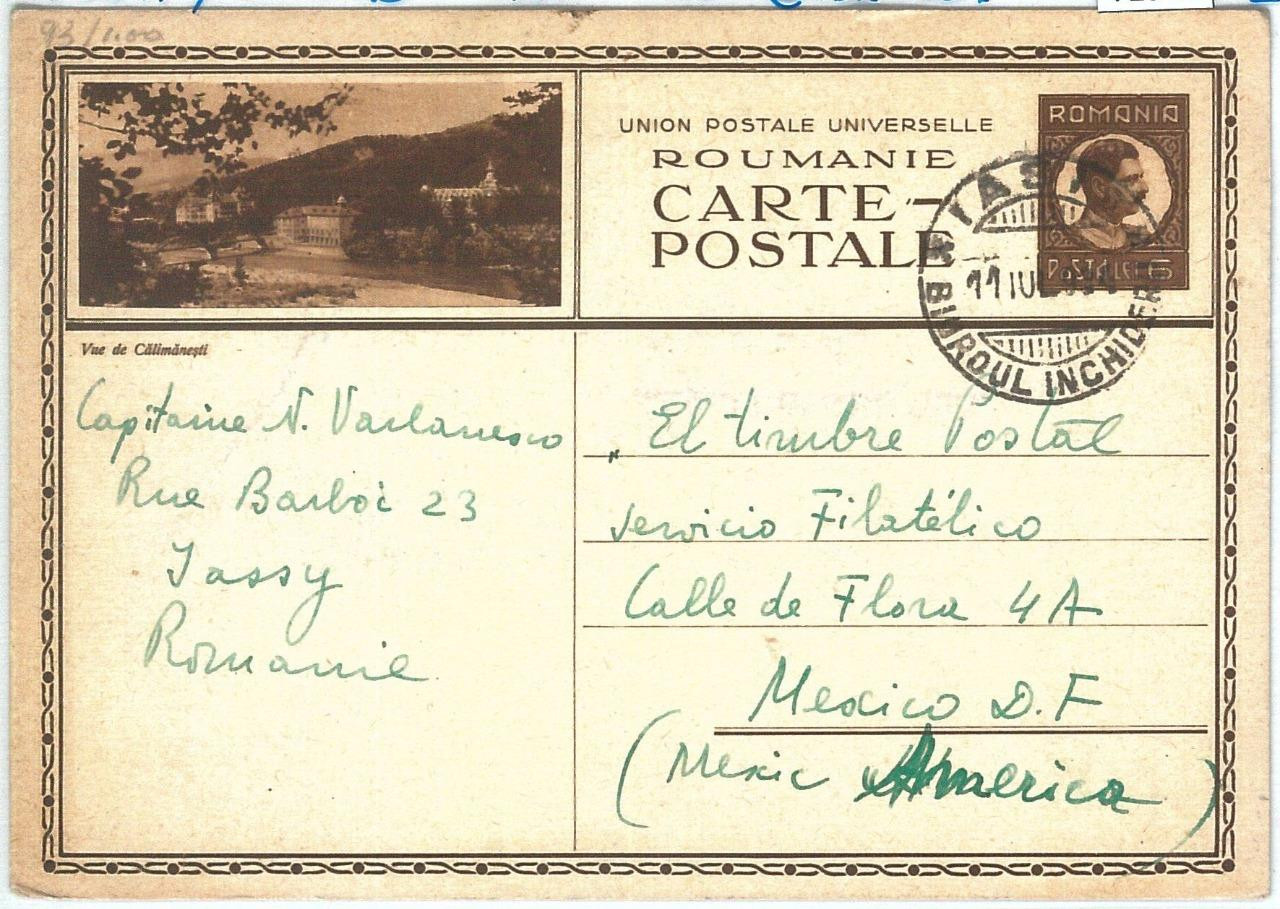 93/1.00
UNION POSTALE UNIVERSELLE
ROUMANIE
CARTE-
POSTALE
ROMANIA
POSTA LEI 6
IASI
11 IUL
BIUROUL INCHIDERI
Vue de Călimănești
Capitaine N. Varlanesco
Rue Barboi 23
Jassy
Romanie
"El timbre Postal
servicio Filatélico
Calle de Flora 4A
Mexico D.F
(Mexic America)